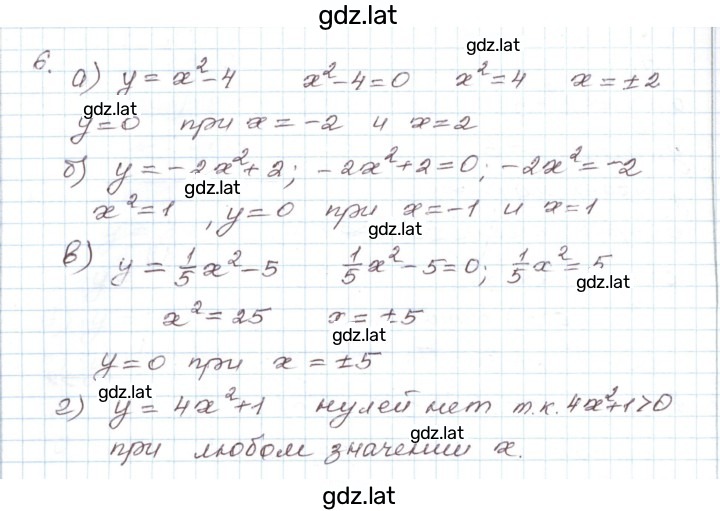 gdz.lat
gdz.lat
6. а) y = x² - 4 x² - 4 = 0 x² = 4 x = ±2
gdz.lat
y = 0 при x = -2 и x = 2
б) y = -2x² + 2; -2x² + 2 = 0; -2x² = -2
gdz.lat
x² = 1 , y = 0 при x = -1 и x = 1
gdz.lat
в) y = 1/5 x² - 5 1/5 x² - 5 = 0; 1/5 x² = 5
gdz.lat
x² = 25 x = ±5
gdz.lat
y = 0 при x = ±5
gdz.lat
г) y = 4x² + 1 нулей нет т.к. 4x² + 1 > 0
gdz.lat
при любом значении x.
gdz.lat